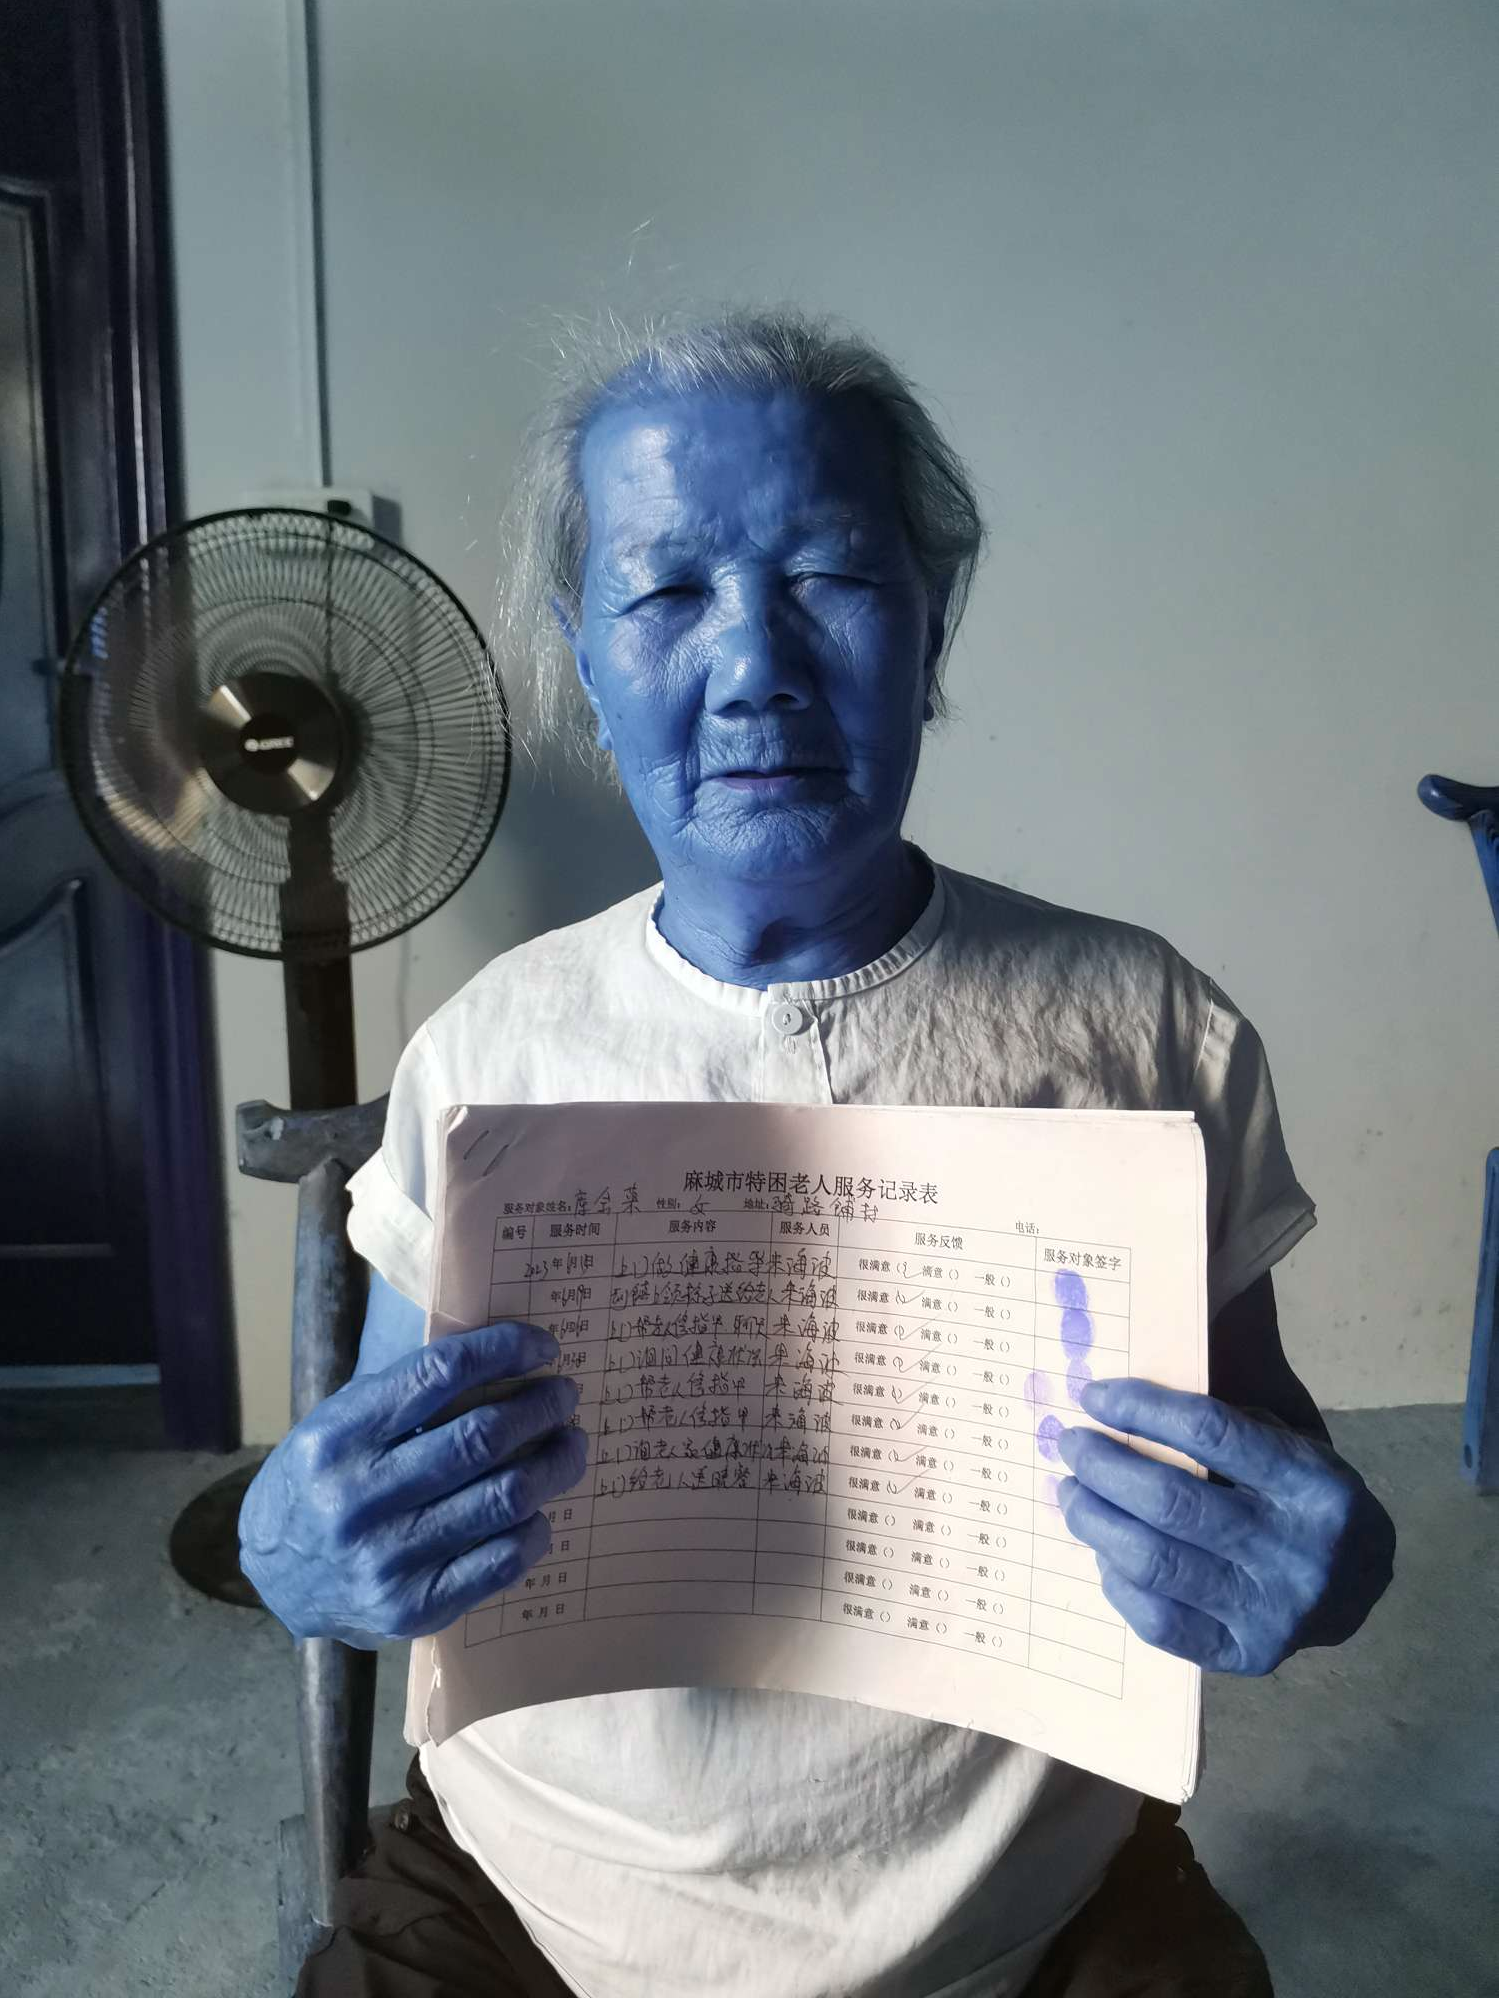 GREE
麻城市特困老人服务记录表
服务对象姓名: 性别: 女 地址: 骑路铺村 电话:
编号 服务时间 服务内容 服务人员 服务反馈 服务对象签字
2023年6月 日 上门做健康指导 来海波 很满意() 满意() 一般()
年6月 日 送给老人 来海波 很满意() 满意() 一般()
年6月 日 上门帮老人修指甲 聊天 来海波 很满意() 满意() 一般()
月 日 上门询问健康状况 来海波 很满意() 满意() 一般()
上门帮老人修指甲 来海波 很满意() 满意() 一般()
上门帮老人修指甲 来海波 很满意() 满意() 一般()
上门询老人家健康状况 来海波 很满意() 满意() 一般()
上门给老人送 来海波 很满意() 满意() 一般()
月 日 很满意() 满意() 一般()
月 日 很满意() 满意() 一般()
年 月 日 很满意() 满意() 一般()
年 月 日 很满意() 满意() 一般()